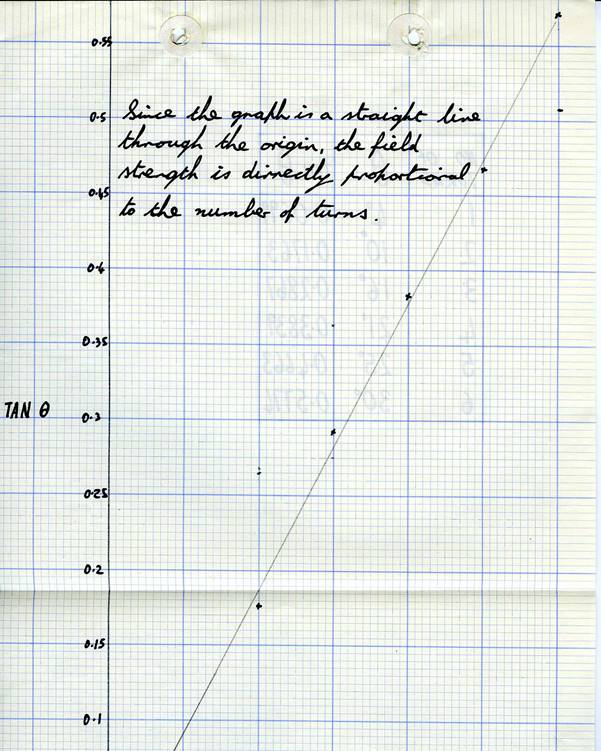 0.55
0.5
Since the graph is a straight line
through the origin, the field
strength is dirrectly proportional
to the number of turns.
0.45
0.4
0.35
TAN θ
0.3
0.25
0.2
0.15
0.1